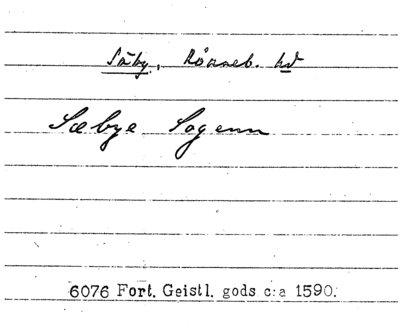 Såby, Rönneb. hd
Sæbye Sogenn
6076 Fort. Geistl. gods c:a 1590.